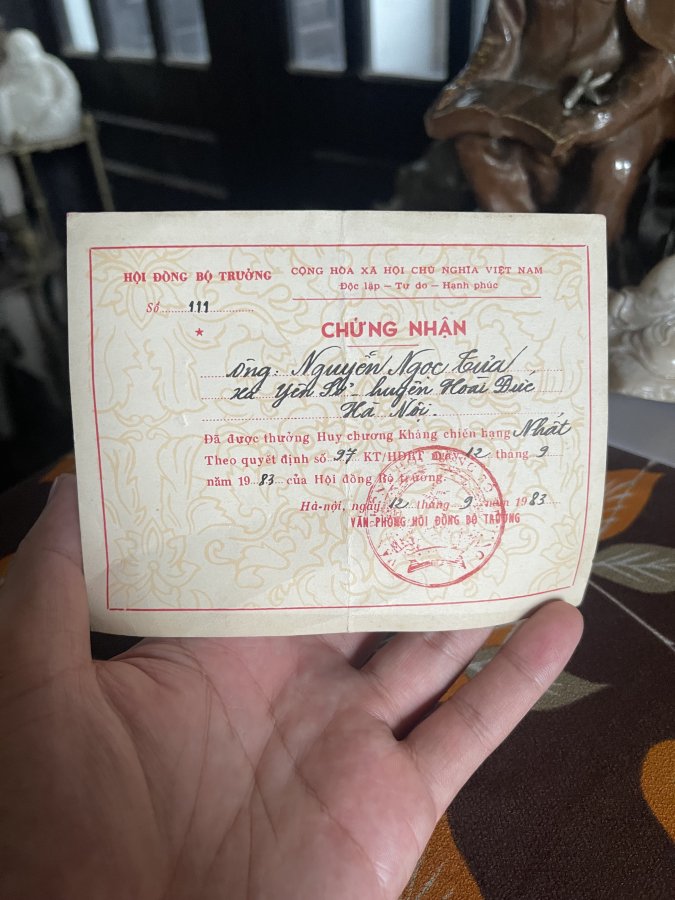 HỘI ĐỒNG BỘ TRƯỞNG
Số 111
CỘNG HÒA XÃ HỘI CHỦ NGHĨA VIỆT NAM
Độc lập - Tự do - Hạnh phúc
CHỨNG NHẬN
Ông: Nguyễn Ngọc Tửa
xã Yên Sở - huyện Hoài Đức
Hà Nội.
Đã được thưởng Huy chương Kháng chiến hạng Nhất
Theo quyết định số 97 KT/HĐBT ngày 12 tháng 9
năm 1983 của Hội đồng Bộ trưởng.
Hà-nội, ngày 12 tháng 9 năm 1983
VĂN PHÒNG HỘI ĐỒNG BỘ TRƯỞNG